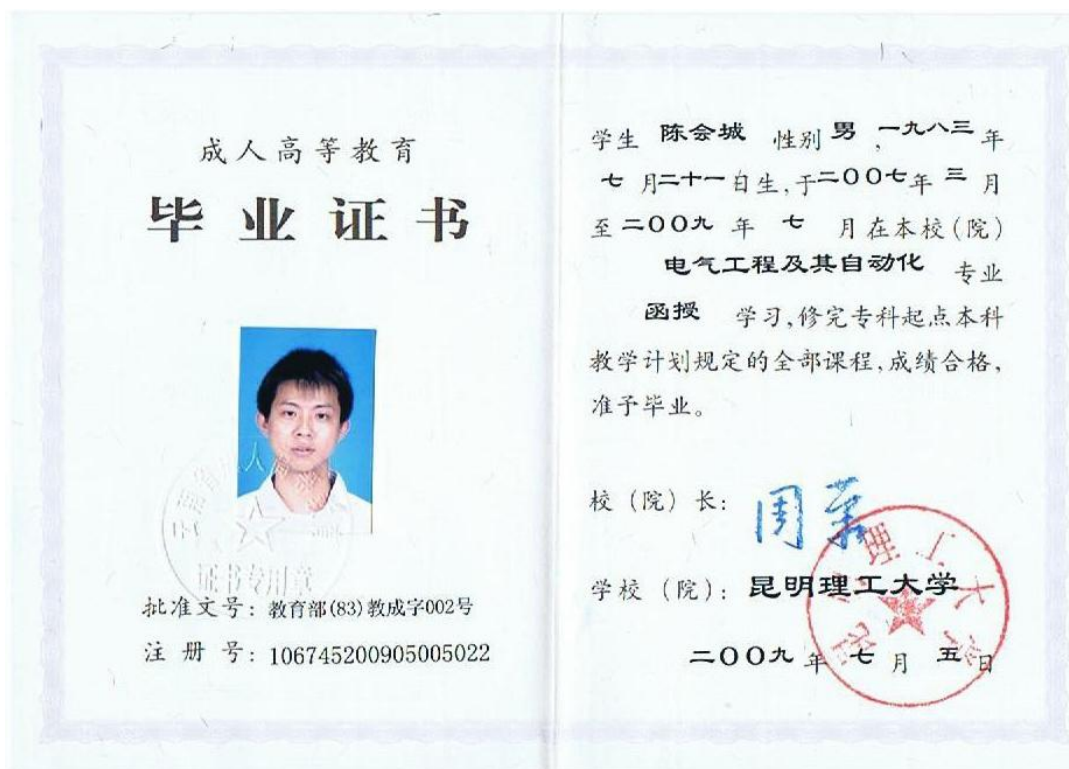 成人高等教育
毕业证书
证书专用章
批准文号：教育部(83)教成字002号
注 册 号：106745200905005022
学生 陈会城 性别 男，一九八三 年
七 月二十一日生，于二〇〇七年 三 月
至 二〇〇九 年 七 月在本校(院)
电气工程及其自动化 专业
函授 学习，修完专科起点本科
教学计划规定的全部课程，成绩合格，
准予毕业。
校（院）长：
学校（院）：昆明理工大学
二〇〇九 年 七 月 五 日